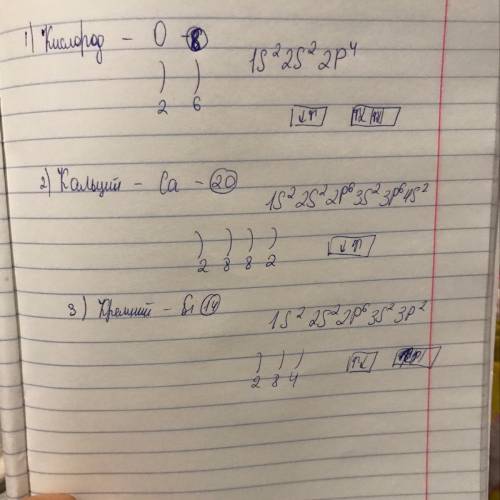 1) Кислород - O - 8
1S² 2S² 2P⁴
) )
2 6
↓↑ ↑↓ ↑↓
2) Кальций - Ca - 20
1S² 2S² 2P⁶ 3S² 3P⁶ 4S²
) ) ) )
2 8 8 2
↓↑
3) Кремний - Si 14
1S² 2S² 2P⁶ 3S² 3P²
) ) )
2 8 4
↑↓